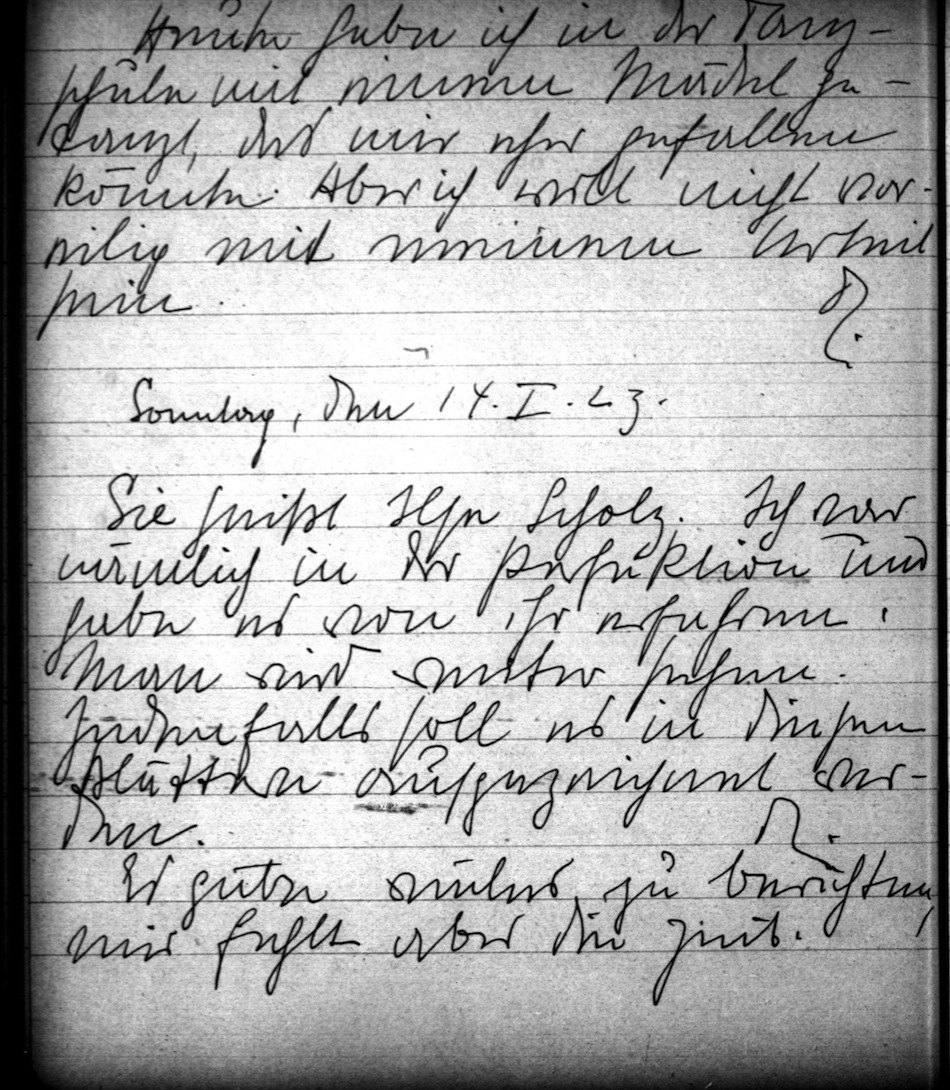 Heute habe ich in der Tanz-
schule mit einem Mädel ge-
tanzt, das mir eher gefallen
könnte. Aber ich will nicht vor-
eilig mit meinem Urteil
sein.
R.
Sonntag, den 14. I. 23.
Sie heißt Ilse Scholz. Ich war
nämlich in der Perfektion und
habe es von ihr erfahren.
Man wird weiter sehen.
Jedenfalls soll es in diesen
Blättern aufgezeichnet wer-
den.
R.
Es gäbe vieles zu berichten,
mir fehlt aber die Zeit.